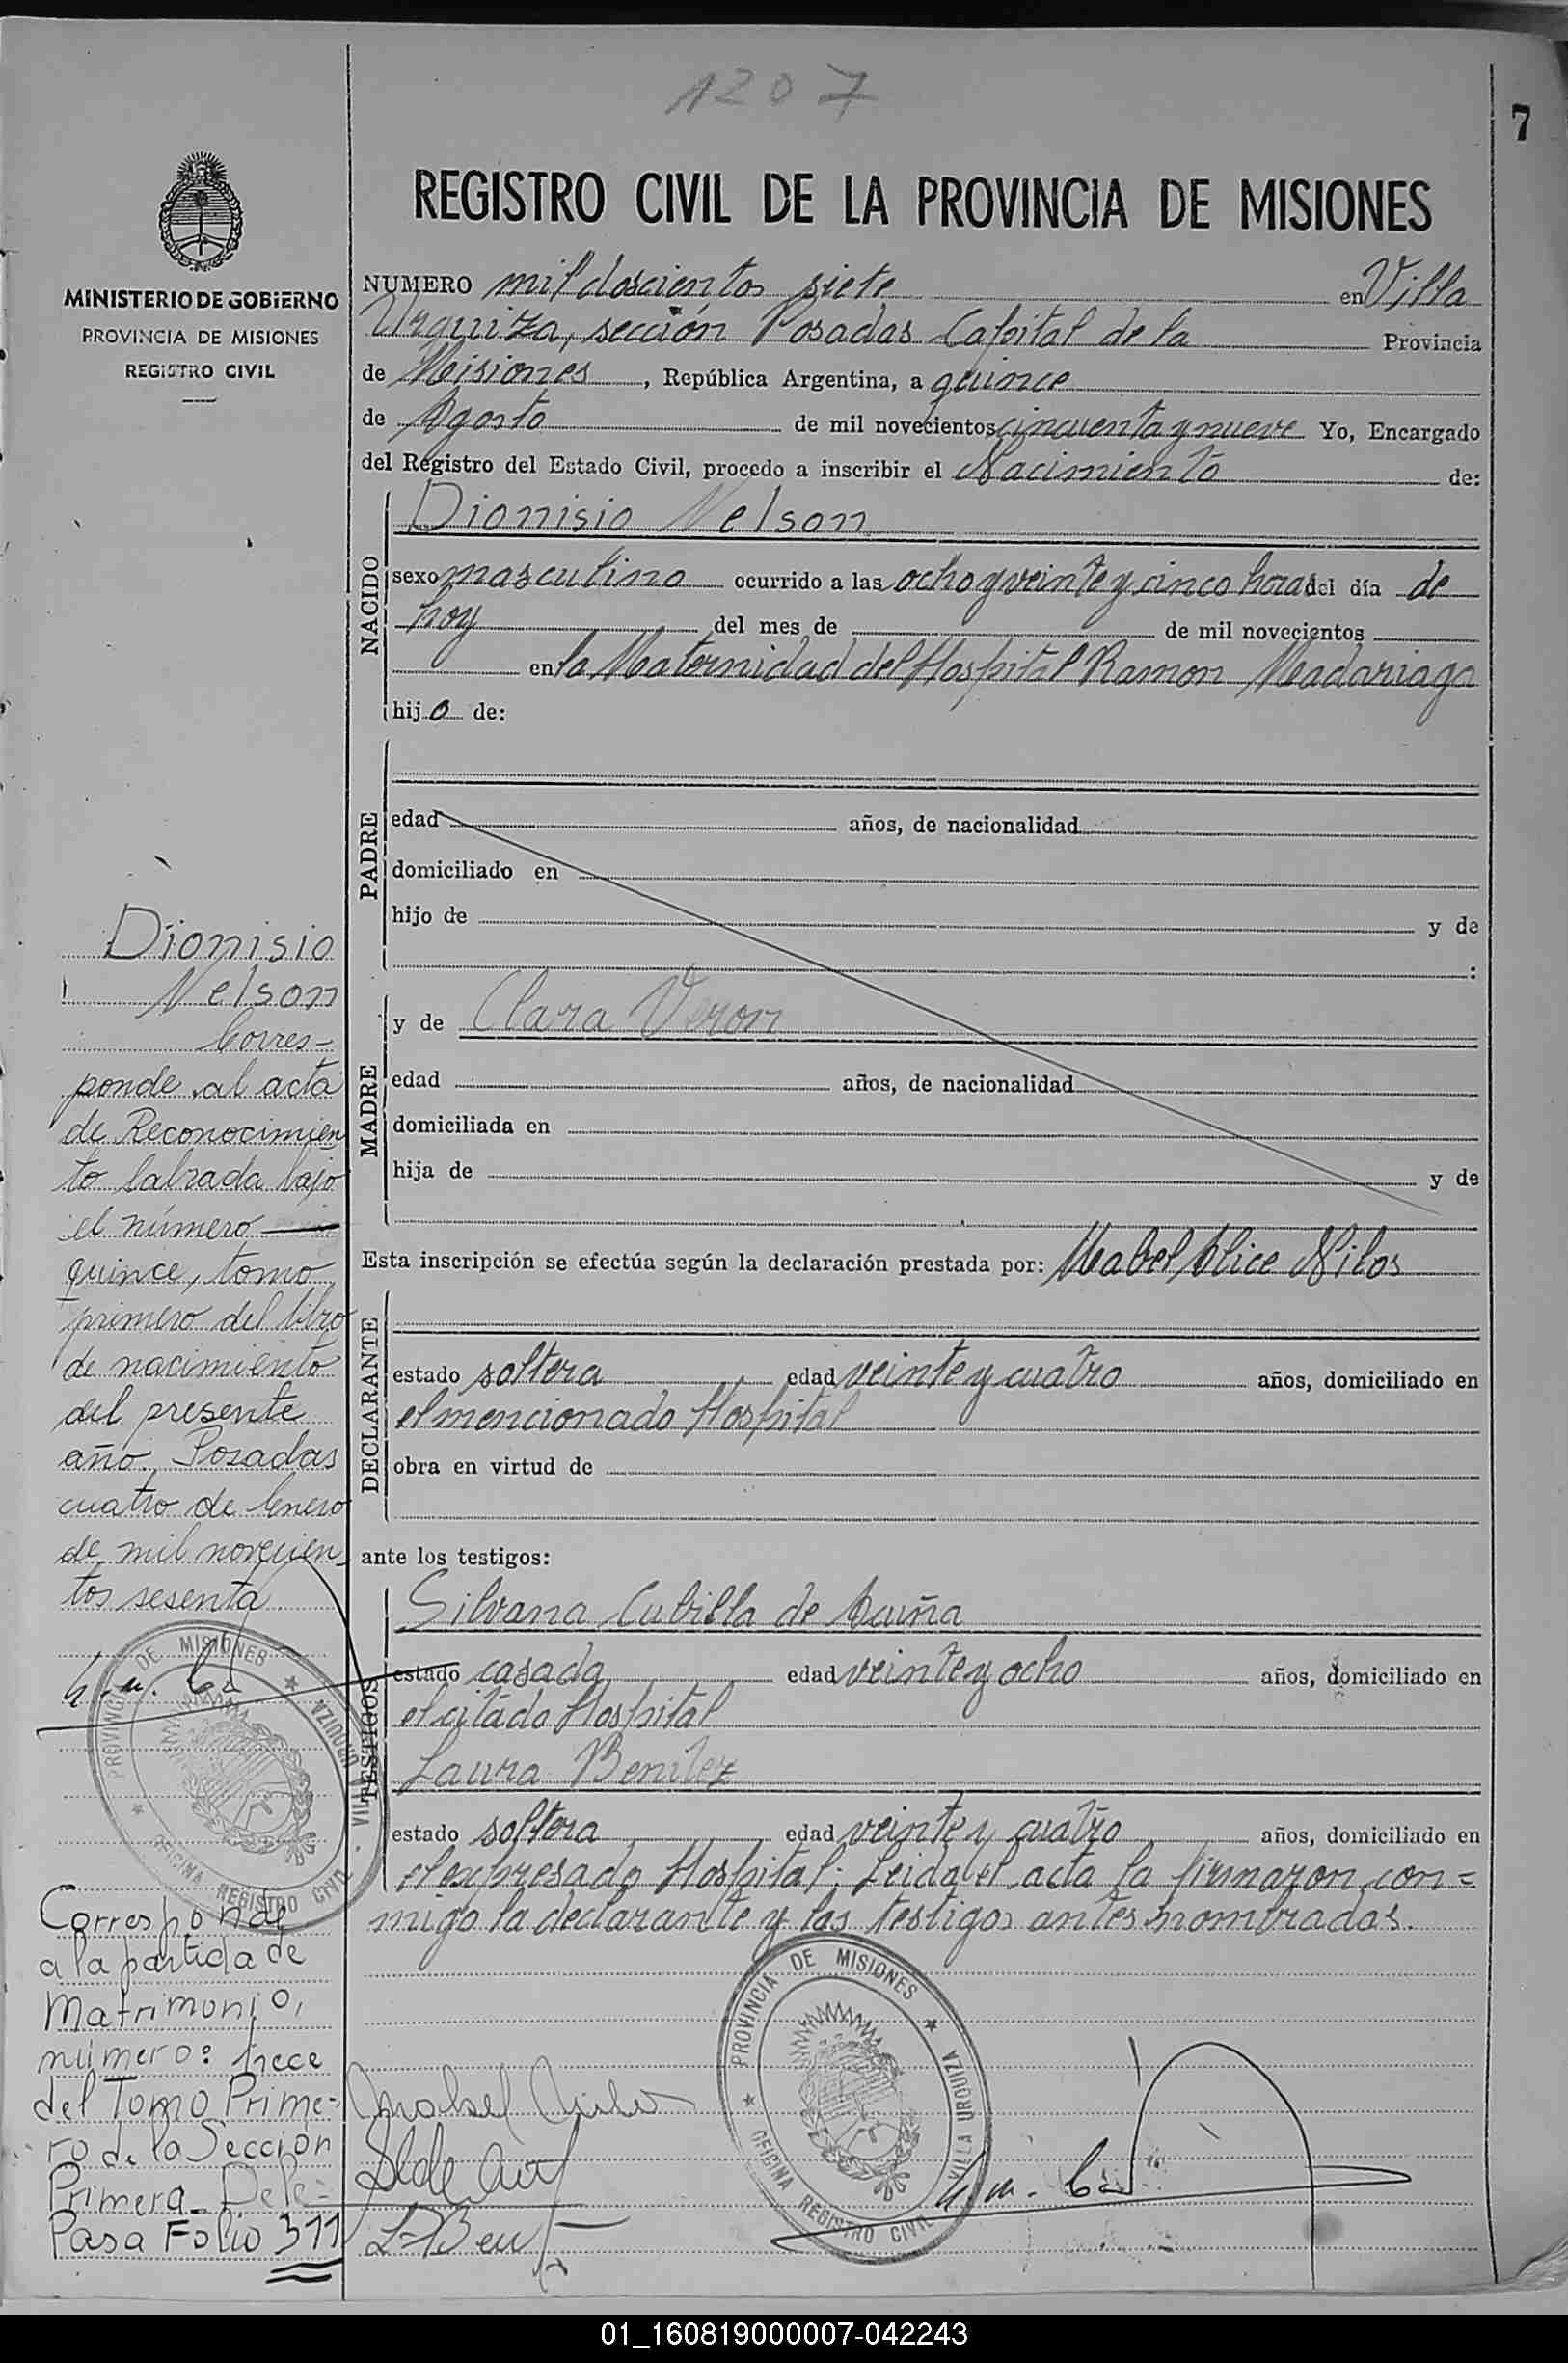 1207
7
REGISTRO CIVIL DE LA PROVINCIA DE MISIONES
MINISTERIO DE GOBIERNO
PROVINCIA DE MISIONES
REGISTRO CIVIL
NUMERO mil doscientos siete en Villa
Urquiza, sección Posadas Capital de la Provincia
de Misiones, República Argentina, a quince
de Agosto de mil novecientos cincuenta y nueve Yo, Encargado
del Registro del Estado Civil, procedo a inscribir el Nacimiento de:
NACIDO
Dionisio Nelson
sexo masculino ocurrido a las ocho y veinte y cinco horas del día de
hoy del mes de de mil novecientos
en la Maternidad del Hospital Ramon Madariaga
hijo de:
PADRE
edad años, de nacionalidad
domiciliado en
hijo de y de
:
MADRE
y de Clara Veron
edad años, de nacionalidad
domiciliada en
hija de y de
Esta inscripción se efectúa según la declaración prestada por: Mabel Alice Nilos
DECLARANTE
estado soltera edad veinte y cuatro años, domiciliado en
el mencionado Hospital
obra en virtud de
ante los testigos:
TESTIGOS
Silvana Cubilla de
estado casada edad veinte y ocho años, domiciliado en
el citado Hospital
Laura Benitez
estado soltera edad veinte y cuatro años, domiciliado en
el expresado Hospital. Leida el acta la firmaron con=
migo la declarante y los testigos antes nombrados.
Dionisio
Nelson
Corres-
ponde al acta
de Reconocimien
to labrada bajo
el número
quince, tomo
primero del libro
de nacimiento
del presente
año. Posadas
cuatro de Enero
de mil novecien
tos sesenta
PROVINCIA DE MISIONES
VILLA URQUIZA
OFICINA REGISTRO CIVIL
Corresponde
a la partida de
Matrimonio,
número: trece
del Tomo Prime-
ro de la Sección
Primera. Dele-
Pasa Folio 311
PROVINCIA DE MISIONES
VILLA URQUIZA
OFICINA REGISTRO CIVIL
01_160819000007-042243